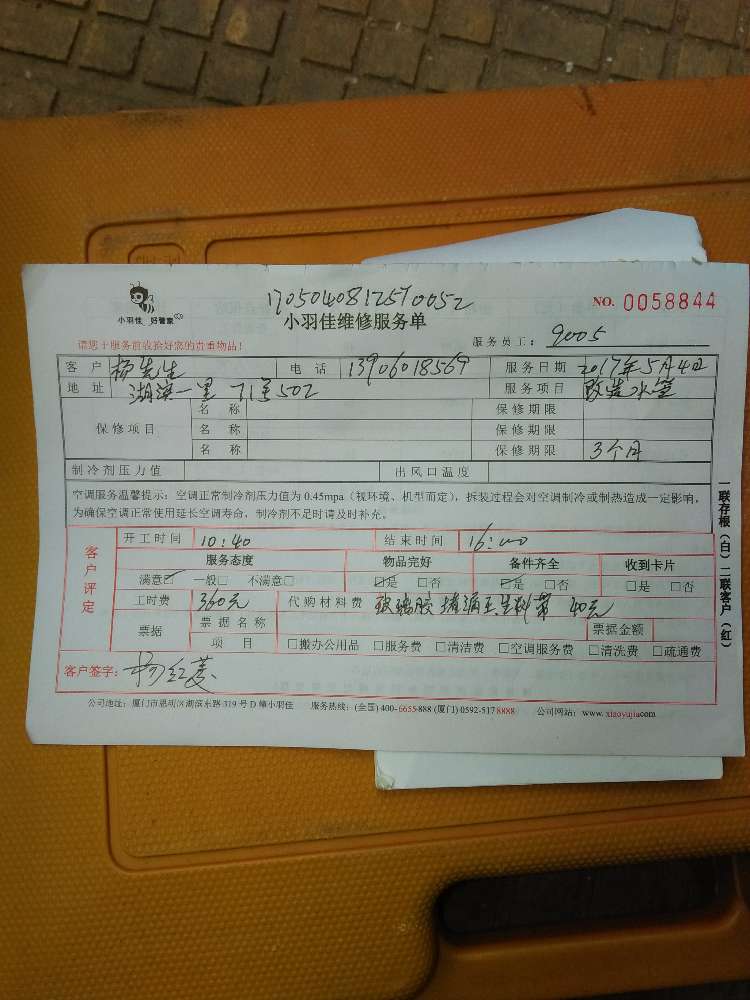 170504081257005２
NO. 0058844
小羽佳 好管家
小羽佳维修服务单
请您于服务前收拾好您的贵重物品!
服务员工: 9005
客户 杨先生 电话 13906018569 服务日期 2017年5月4日
地址 湖滨一里71号502 服务项目 改造水管
保修项目
名称 保修期限
名称 保修期限
名称 保修期限 3个月
制冷剂压力值 出风口温度
空调服务温馨提示: 空调正常制冷剂压力值为 0.45mpa (视环境、机型而定), 拆装过程会对空调制冷或制热造成一定影响,
为确保空调正常使用延长空调寿命, 制冷剂不足时请及时补充。
客户评定
开工时间 10:40 结束时间 16:00
服务态度 物品完好 备件齐全 收到卡片
满意☑ 一般□ 不满意□ ☑是 □否 ☑是 □否 □是 □否
工时费 360元 代购材料费 玻璃胶 堵漏王 40元
票据 票据名称 票据金额
项目 □搬办公用品 □服务费 □清洁费 □空调服务费 □清洗费 □疏通费
客户签字:
公司地址: 厦门市思明区湖滨东路 319 号 D 幢小羽佳 服务热线: (全国) 400-6655-888 (厦门) 0592-5178888 公司网站: www.xiaoyujia.com
一联存根(白)二联客户(红)